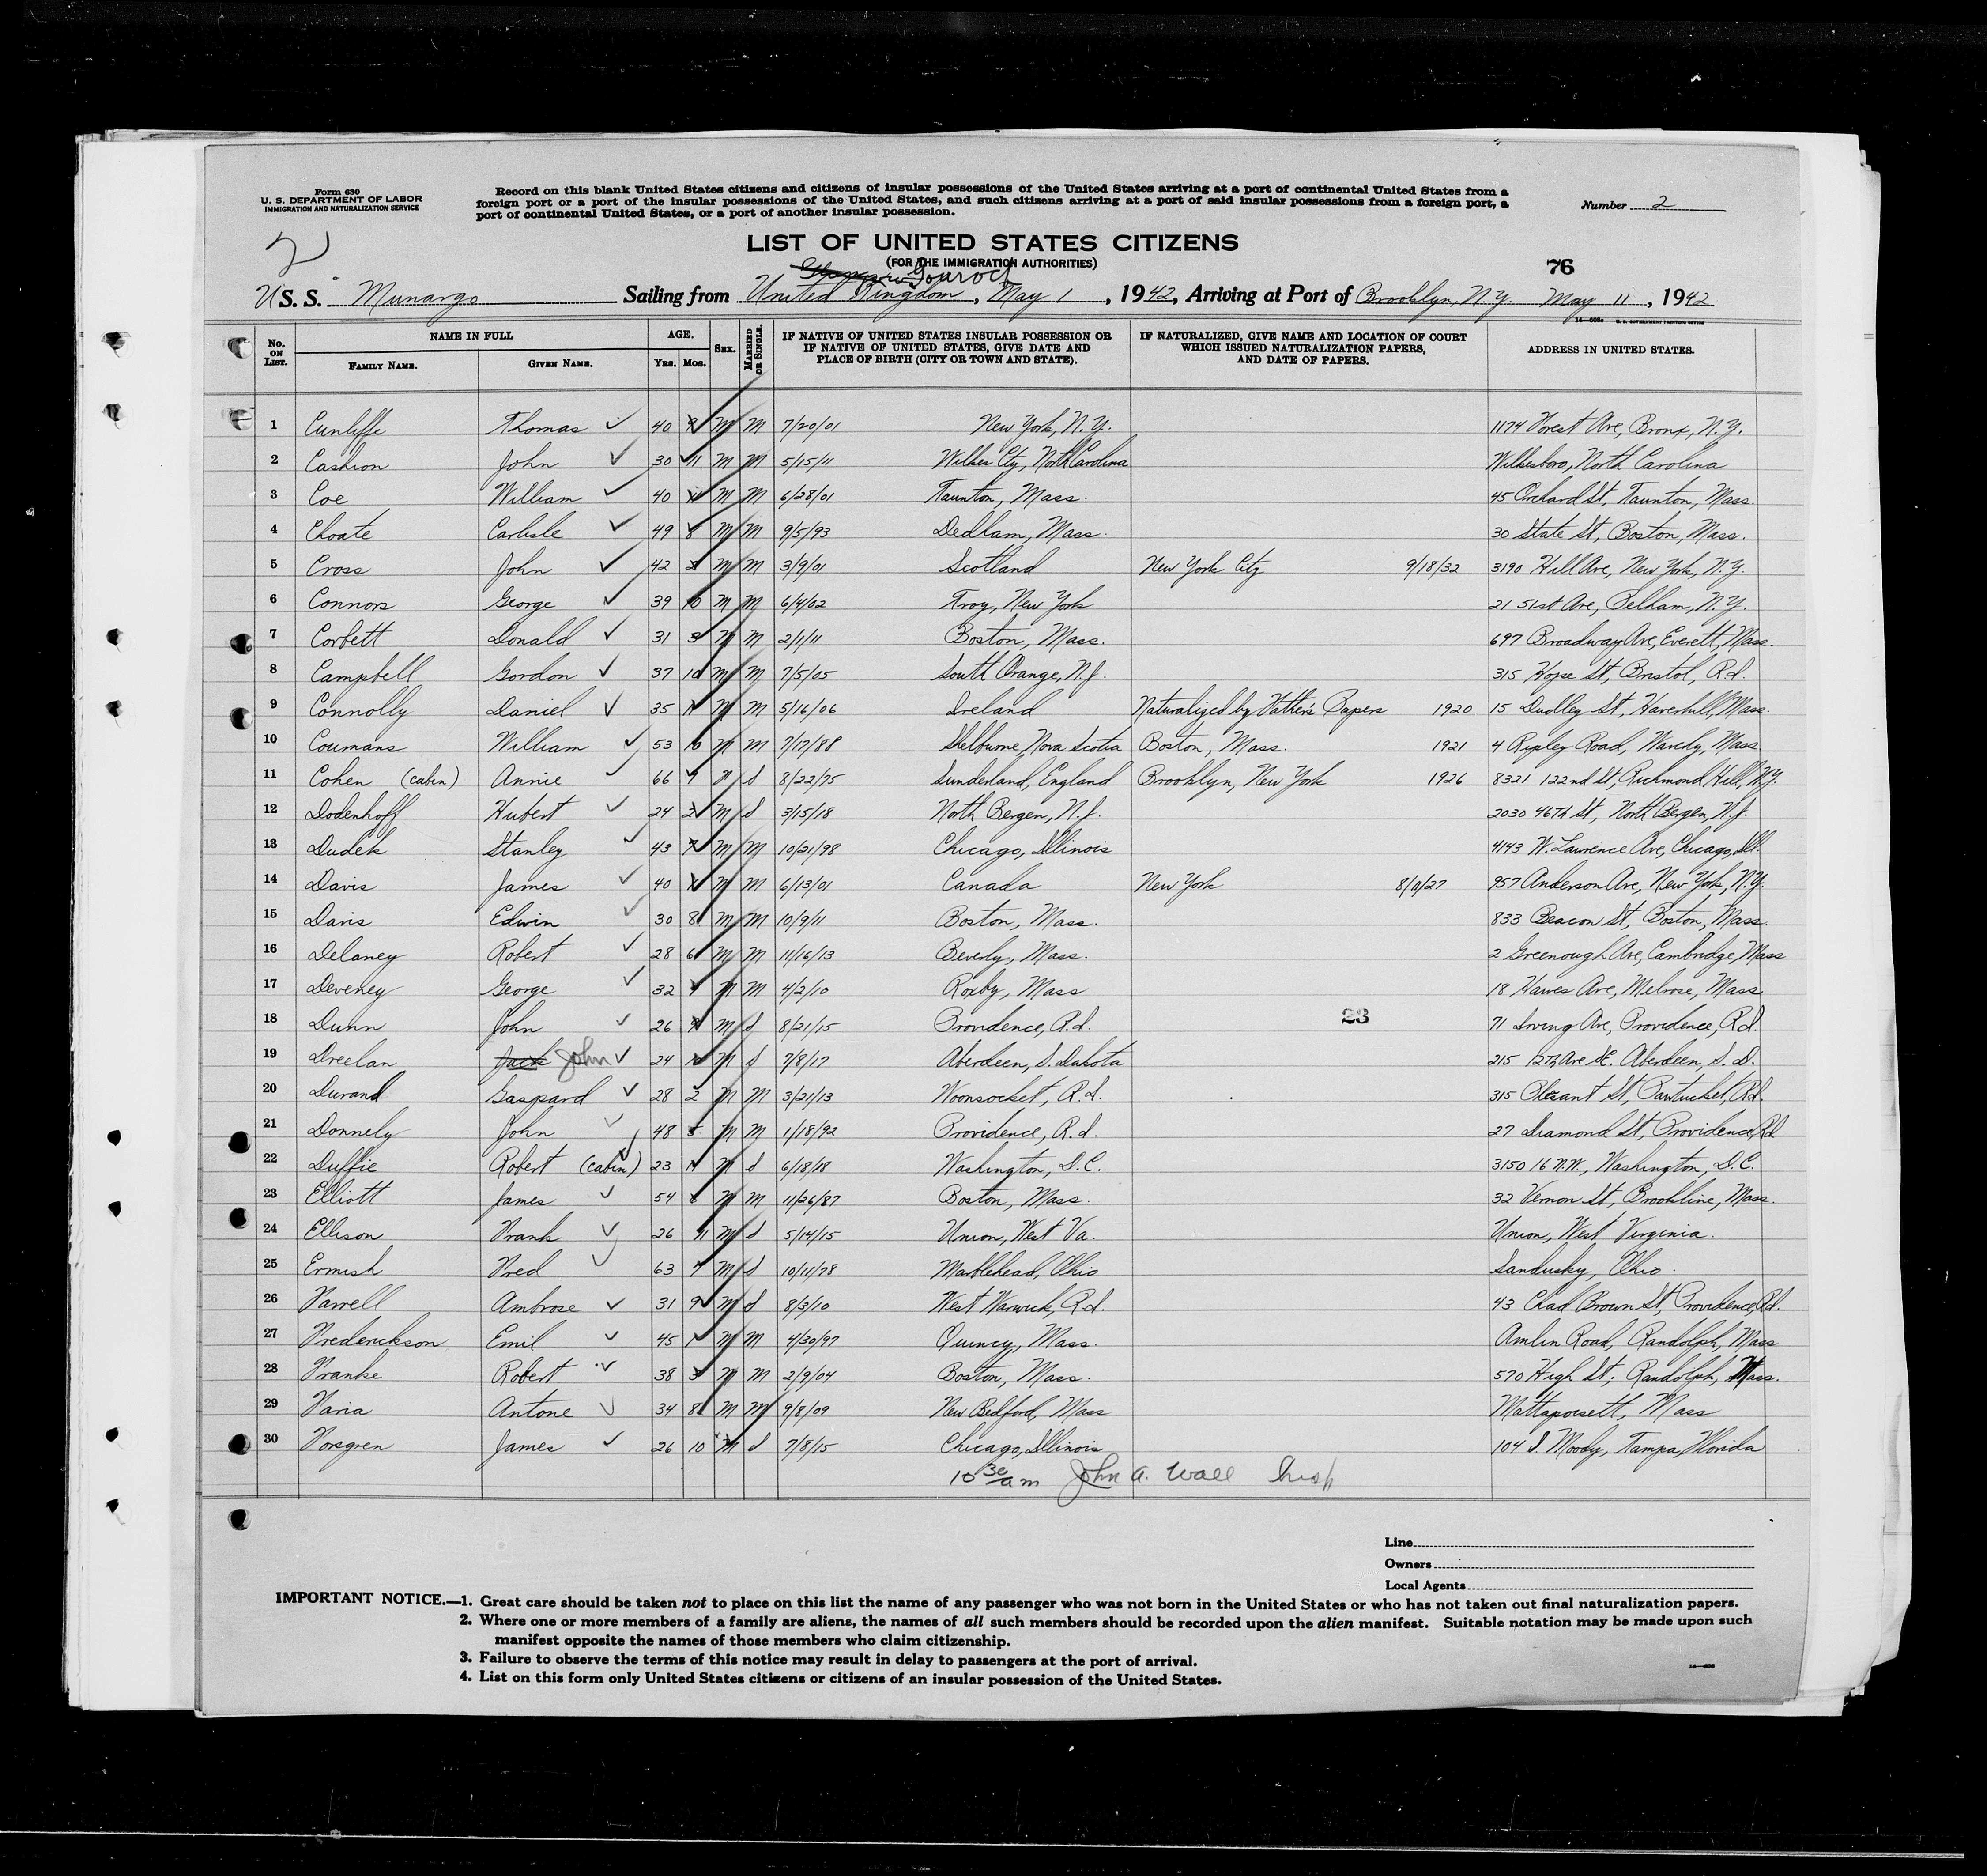 Form 630
U. S. DEPARTMENT OF LABOR
IMMIGRATION AND NATURALIZATION SERVICE
Record on this blank United States citizens and citizens of insular possessions of the United States arriving at a port of continental United States from a
foreign port or a port of the insular possessions of the United States, and such citizens arriving at a port of said insular possessions from a foreign port, a
port of continental United States, or a port of another insular possession.
Number 2
2
LIST OF UNITED STATES CITIZENS
(FOR THE IMMIGRATION AUTHORITIES)
76
Gourock
U S. S. Munargo Sailing from United Kingdom, May 1, 1942, Arriving at Port of Brooklyn, N.Y. May 11, 1942
No. ON LIST. NAME IN FULL FAMILY NAME. GIVEN NAME. AGE. YRS. MOS. SEX. MARRIED OR SINGLE. IF NATIVE OF UNITED STATES INSULAR POSSESSION OR IF NATIVE OF UNITED STATES, GIVE DATE AND PLACE OF BIRTH (CITY OR TOWN AND STATE). IF NATURALIZED, GIVE NAME AND LOCATION OF COURT WHICH ISSUED NATURALIZATION PAPERS, AND DATE OF PAPERS. ADDRESS IN UNITED STATES.
1 Cunliffe Thomas 40 M M 7/20/01 New York, N.Y. 1174 Forest Ave, Bronx, N.Y.
2 Cashion John 30 11 M M 5/15/11 Wilkes Cty, North Carolina Wilkesboro, North Carolina
3 Coe William 40 M M 6/28/01 Taunton, Mass. 45 Orchard St, Taunton, Mass.
4 Choate Carlisle 49 8 M M 9/5/93 Dedham, Mass. 30 State St, Boston, Mass.
5 Cross John 42 2 M M 3/9/01 Scotland New York City 9/18/32 3190 Hill Ave, New York, N.Y.
6 Connors George 39 10 M M 6/4/02 Troy, New York 21 51st Ave, Pelham, N.Y.
7 Corbett Donald 31 3 M M 2/1/11 Boston, Mass. 697 Broadway Ave, Everett, Mass.
8 Campbell Gordon 37 10 M M 7/5/05 South Orange, N.J. 315 Hope St, Bristol, R.I.
9 Connolly Daniel 35 M M 5/16/06 Ireland Naturalized by Father's Papers 1920 15 Dudley St, Haverhill, Mass.
10 Coumans William 53 10 M M 7/17/88 Shelburne, Nova Scotia Boston, Mass. 1921 4 Ripley Road, Mass
11 Cohen (cabin) Annie 66 S 8/22/75 Sunderland, England Brooklyn, New York 1926 8321 122nd St, Richmond Hill, N.Y.
12 Dodenhoff Hubert 24 2 M S 3/15/18 North Bergen, N.J. 2030 46th St, North Bergen, N.J.
13 Dudek Stanley 43 M M 10/21/98 Chicago, Illinois 4143 W. Lawrence Ave, Chicago, Ill.
14 Davis James 40 M M 6/13/01 Canada New York 957 Anderson Ave, New York, N.Y.
15 Davis Edwin 30 8 M M 10/9/11 Boston, Mass. 833 Beacon St, Boston, Mass.
16 Delaney Robert 28 6 M M 11/16/13 Beverly, Mass. 2 Greenough Ave, Cambridge, Mass
17 Deveney George 32 M M 4/2/10 Roxby, Mass 18 Hawes Ave, Melrose, Mass
18 Dunn John 26 M S 8/21/15 Providence, R.I. 23 71 Irving Ave, Providence, R.I.
19 Dreelan Jack John 24 M S 7/8/17 Aberdeen, S. Dakota 215 12th Ave SE. Aberdeen, S. D.
20 Durand Gaspard 28 2 M M 3/21/13 Woonsocket, R.I. 315 Plesant St, Pawtucket, R.I.
21 Donnely John 48 M M 1/18/92 Providence, R.I. 27 Diamond St, Providence, R.I.
22 Duffie Robert (cabin) 23 M S 6/18/18 Washington, D.C. 3150 16 N.W., Washington, D.C.
23 Elliott James 54 M M 11/26/87 Boston, Mass. 32 Vernon St, Brookline, Mass.
24 Ellison Frank 26 11 M S 5/14/15 Union, West Va. Union, West Virginia.
25 Ermish Fred 63 7 M S 10/11/78 Marblehead, Ohio Sandusky, Ohio.
26 Farrell Ambrose 31 9 M S 8/3/10 West Warwick, R.I. 43 Chad Brown St, Providence, R.I.
27 Frederickson Emil 45 M M 4/30/97 Quincy, Mass. Amlin Road, Randolph, Mass
28 Franke Robert 38 3 M M 2/9/04 Boston, Mass. 570 High St; Randolph, Mass.
29 Faria Antone 34 8 M M 9/8/09 New Bedford, Mass Mattapoisett, Mass
30 Forsgren James 26 10 M S 7/8/15 Chicago, Illinois 104 S. Moody, Tampa, Florida
10 30 am John A. Wall Insp
Line
Owners
Local Agents
IMPORTANT NOTICE.—1. Great care should be taken not to place on this list the name of any passenger who was not born in the United States or who has not taken out final naturalization papers.
2. Where one or more members of a family are aliens, the names of all such members should be recorded upon the alien manifest. Suitable notation may be made upon such
manifest opposite the names of those members who claim citizenship.
3. Failure to observe the terms of this notice may result in delay to passengers at the port of arrival.
4. List on this form only United States citizens or citizens of an insular possession of the United States.